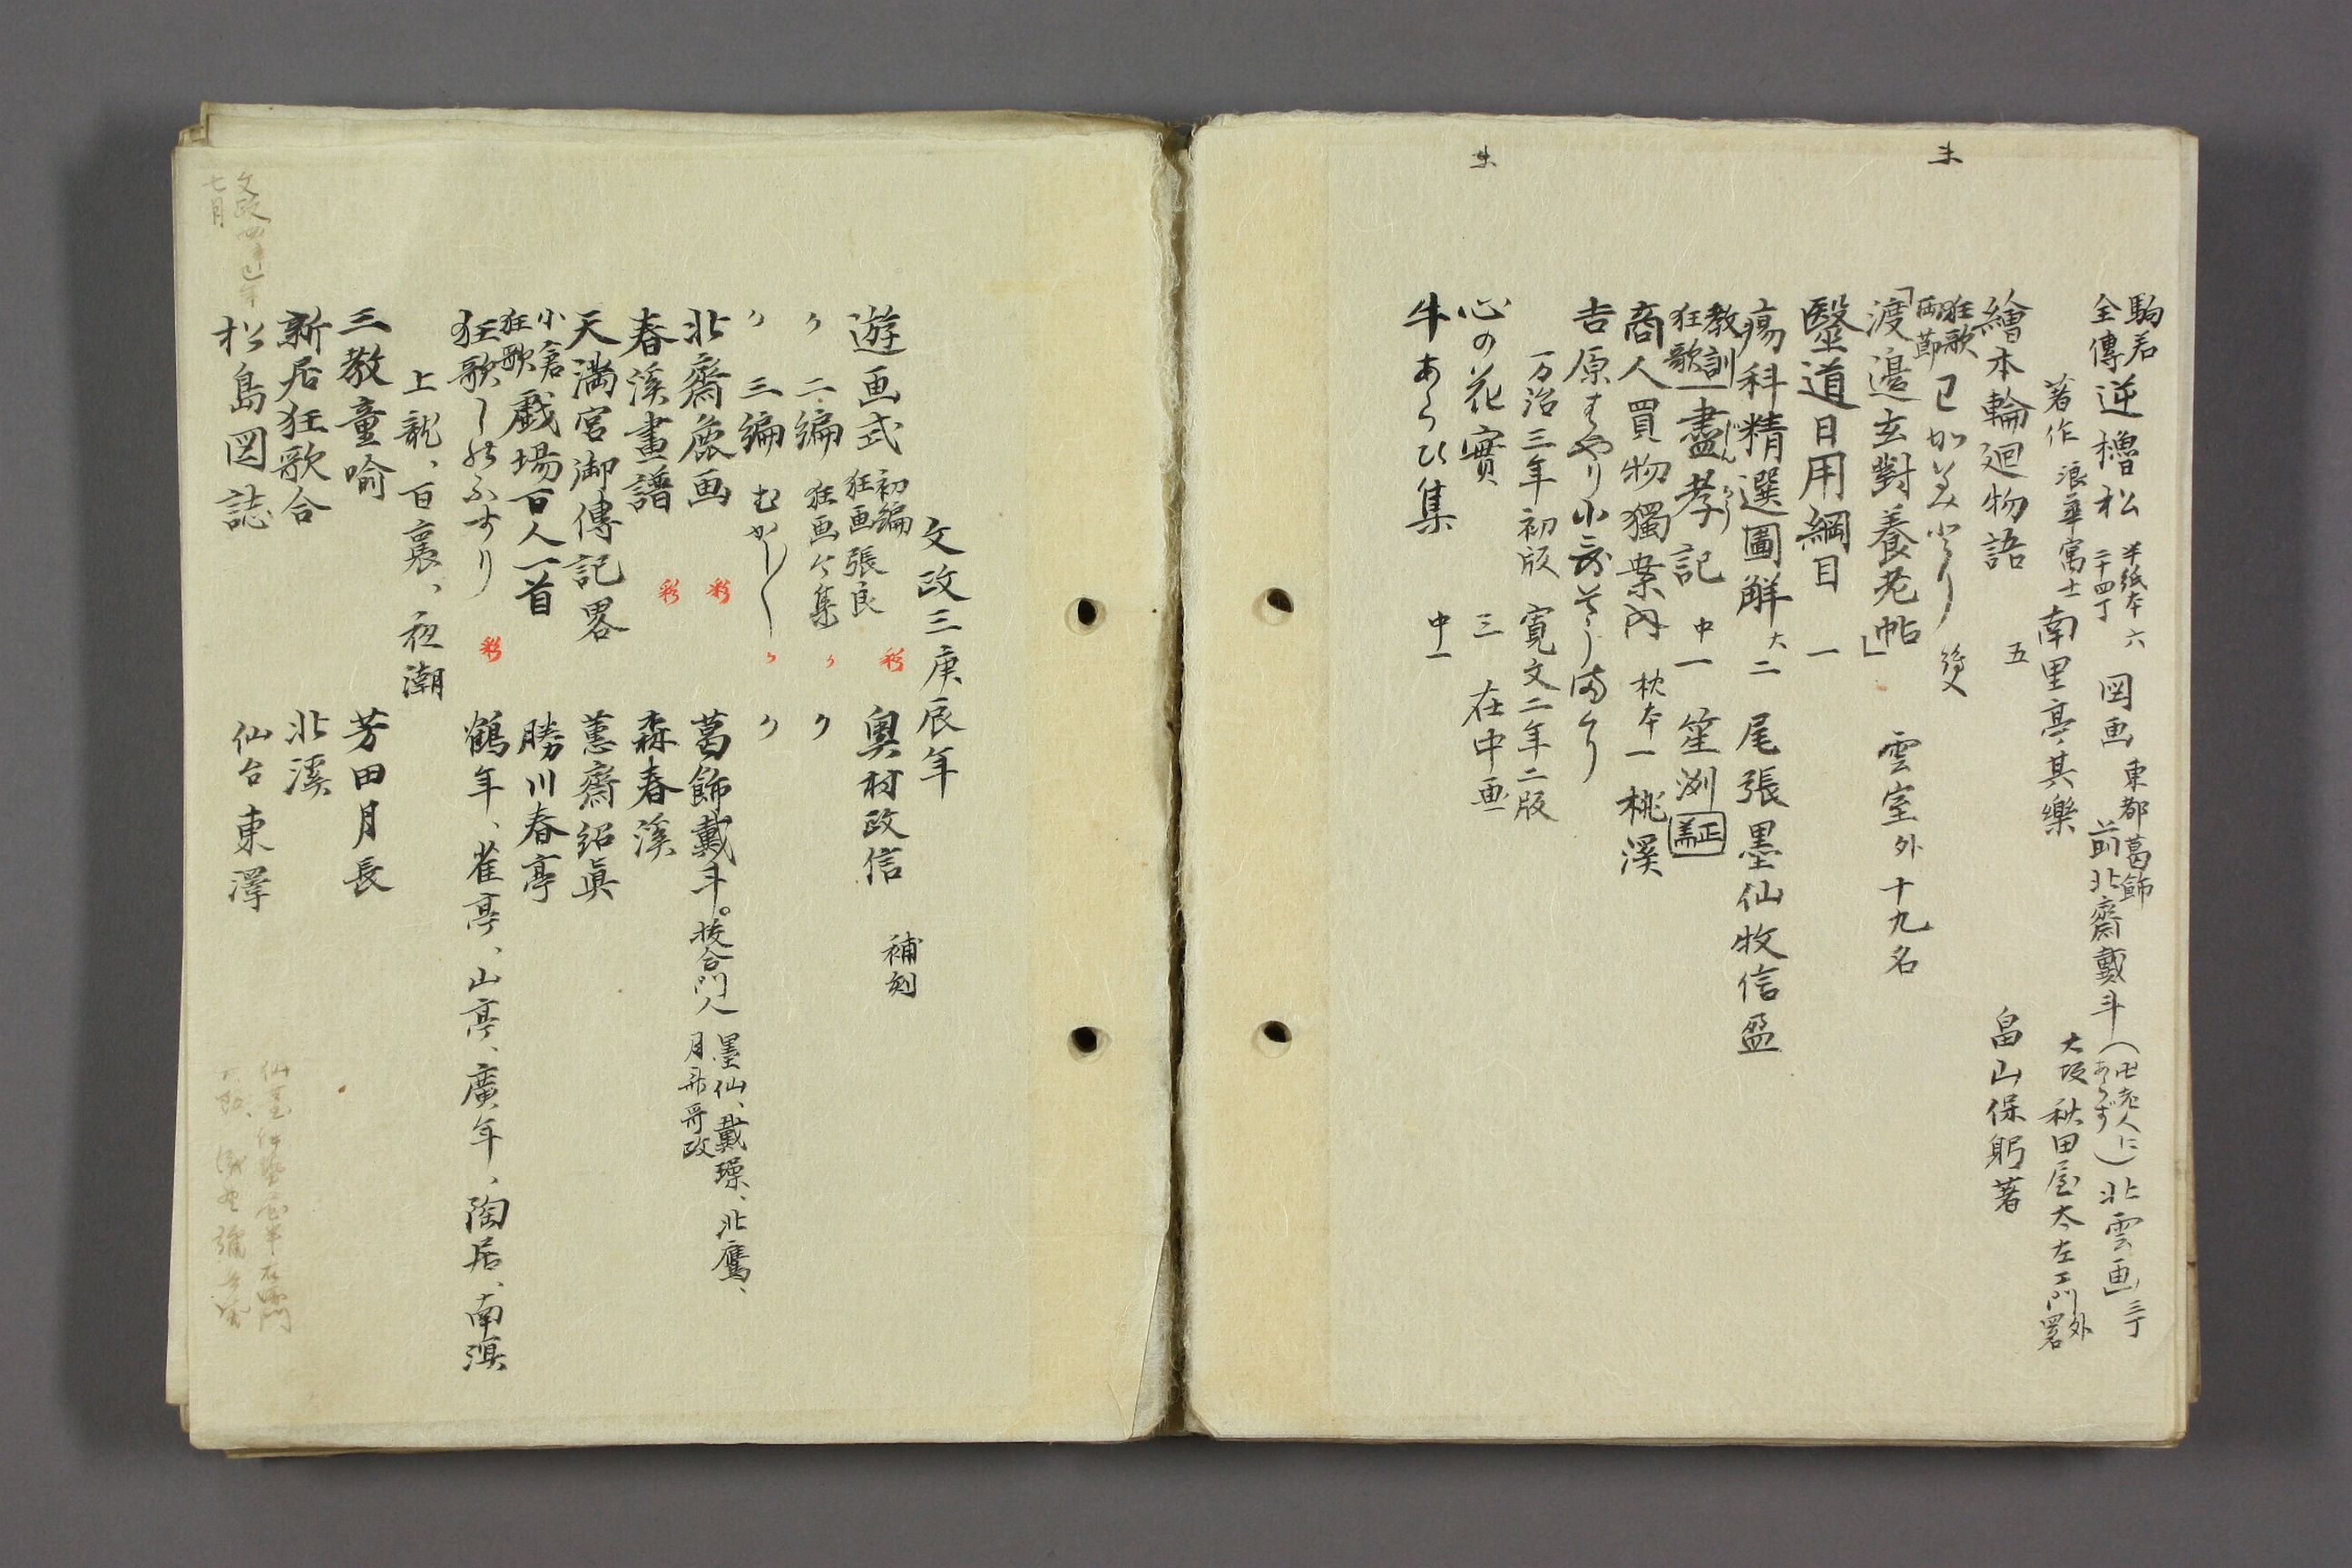 駒若全傳 逆櫓松 半紙本二十四丁 六 図画 東都葛飾前北齋戴斗(卍老人にあらず)北雲画」三丁
著作 浪華寓士 南里亭其樂 大坂 秋田屋太左ヱ門外畧
繪本輪廻物語 五 畠山保躬著
狂歌
「渡邉玄對養老帖」 雲室外十九名
毉道日用綱目 一
瘍科精選圖解 大二 尾張墨仙牧信盈
教訓狂歌 一盡孝記 中一 笙洌
商人買物獨案内 枕本一 桃溪
吉原はやり小哥そうまくり
万治三年初版 寛文二年二版
心の花實 三 在中画
牛あらひ集 中一
文政三庚辰年
遊画式 初編 狂画張良 彩 奥村政信 補刻
〃 二編 狂画今集 〃 〃
〃 三編 むかし〱 〃 〃
北齋麁画 彩 葛飾戴斗。校合門人 墨仙、戴璪、北鷹、月斎哥政
春溪畫譜 彩 森春溪
天満宮御傳記畧 蕙齋紹眞
小倉狂歌 戯場百人一首 勝川春亭
狂歌しのふすり 彩 鶴年、雀亭、山亭、廣年、陶居、南溟
上龍、百裏、在潮
三教童喩 芳田月長
新居狂歌合 北溪
松島図誌 仙台東澤
文政四年巳年七月